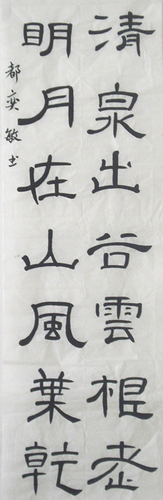 清泉出谷雲根老
明月在山風葉乾
都奕敏书